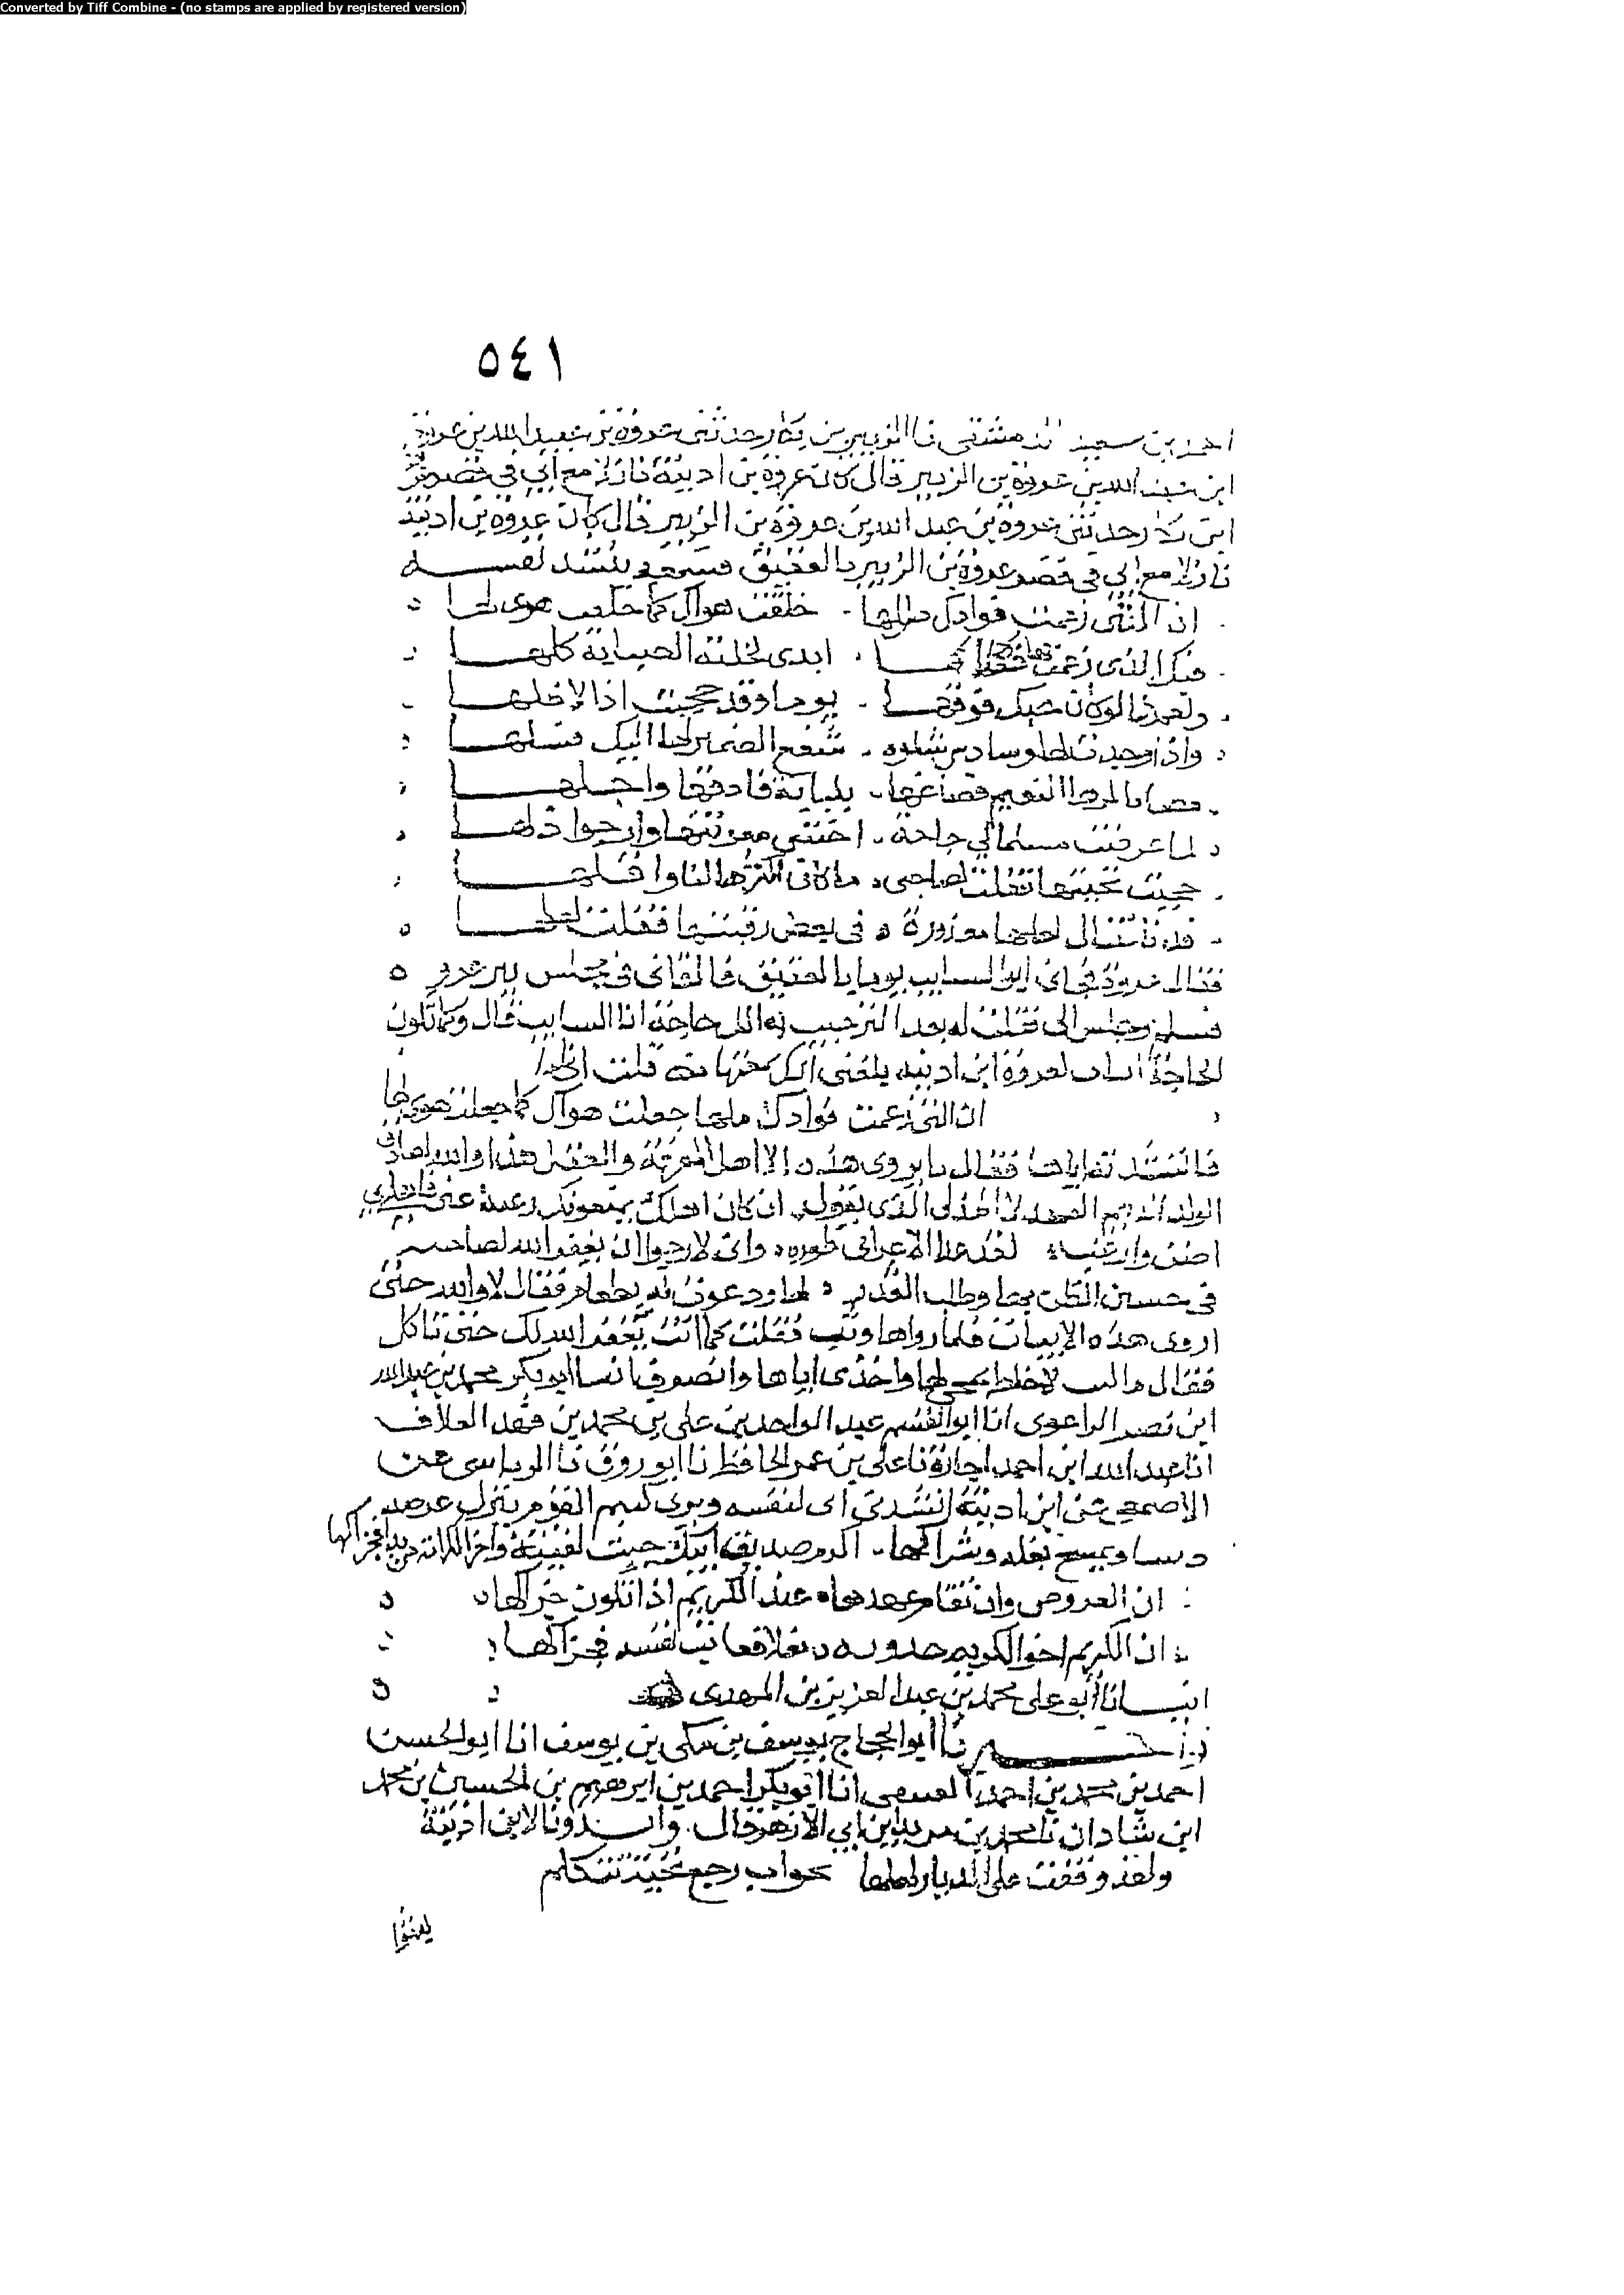 Converted by Tiff Combine - (no stamps are applied by registered version)
٥٤١
احمد بن سعيد الدمشقي نا الزبير بن بكار حدثني عروة بن عبيد الله بن عروة
ابن عبد الله بن عروة بن الزبير قال كان عروة بن اذينة نازلا مع ابي في قصر عروة
ابن بكار حدثني عروة بن عبد الله بن عروة بن الزبير قال كان عروة بن اذينة
نازلا مع ابي في قصر عروة بن الزبير بالعقيق فسمعه ينشد لنفسه
ان التي زعمت فوادك ملها خلقت هواك كما خلقت هوى لها
فبك الذي زعمت بها ابدى لخلته الصبابة كلها
ولعمرها لو كان حبك فوقها يوما وقد حجبت اذا لاظلها
واذا وجدت لها وساوس سلوة شفع الضمير لها اليك فسلها
بلباقة فادقها واجلها
لما عرضت مسلما لي حاجة اخشى معونتها وارجوا ذلها
حجبت تحيتها فقلت لصاحبي ما كان اكثرها لنا واقلها
فدنا فقال لعلها معذورة في بعض رقبتها فقلت لعلها
فقال عروة فجاني ابو السايب يوما بالعقيق فالفاني في مجلس بير عروة
فسلم وجلس الي فقلت له بعد الترحيب به الك حاجة ابا السايب قال وكما تكون
الحاجة ابيات لعروة ابن اذينة بلغني انك سمعتها منه قلت اي
ان التي زعمت فوادك ملها جعلت هواك كما جعلت هوى لها
فانشدته اياها فقال ما يروي هذه الا اهل المعرفة والعقل هذا والله الصادق
الود الدايم العهد لا الهذلي الذي يقول ان كان اهلك يمنعونك رغبة عني فاهلي بي
اضن وارغب لقد عدا الاعرابي طوره واني لارجوا ان يغفر الله لصاحبه
في حسن الظن بها وطلب العذر لها ودعوت له بطعام فقال لا والله حتى
اروي هذه الابيات فلما رواها وثب فقلت كما انت يغفر الله لك حتى تاكل
فقال ما كنت لاخلط بمحبتي لها واخذي اياها وانصرف انبانا ابو بكر محمد بن عبد الله
ابن نصر الزاغوني انا ابو القسم عبد الواحد بن علي بن محمد بن فهد العلاف
انا عبد الله ابن احمد اجازة نا علي بن عمر الحافظ نا ابو روق نا الرياشي عن
الاصمعي عن ابن اذينة انشدني اي لنفسه ويروى
نعله وشراكها اكرم صديق ابيك حيث لقيته
ان العروض وان تقادم عهدها عند الكريم اذا تكون
ان الكريم اخو الكريم
انبانا ابو علي محمد بن عبد العزيز بن المهدي
نا ابو الحجاج يوسف بن مكي بن يوسف انا ابو الحسن
احمد بن محمد بن احمد العتيقي انا ابو بكر احمد بن ابرهيم بن الحسين بن محمد
ابن شاذان نا محمد بن مزيد ابن ابي الازهر قال وانشدونا لابن اذينة
ولقد وقفت على الديار لعلها بجواب رجع تحية تتكلم